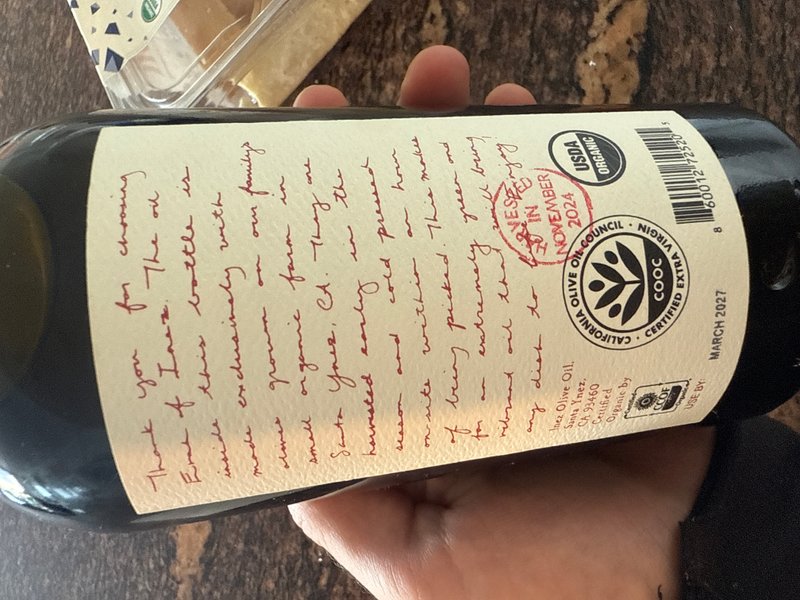 Thank you for choosing
Ever & Inez. The oil
inside this bottle is
made exclusively with
olives grown on our family's
small organic farm in
Santa Ynez, CA. They are
harvested early in the
season and cold pressed
on-site within an hour
of being picked. This makes
for an extremely green and
vibrant oil that will bring
any dish to life. Enjoy
HARVESTED
IN
NOVEMBER
2024
USDA
ORGANIC
8 60012 72520 5
Inez Olive Oil.
Santa Ynez,
CA 93460
Certified
Organic by
CCOF
CALIFORNIA OLIVE OIL COUNCIL · CERTIFIED EXTRA VIRGIN ·
COOC
USE BY:
MARCH 2027